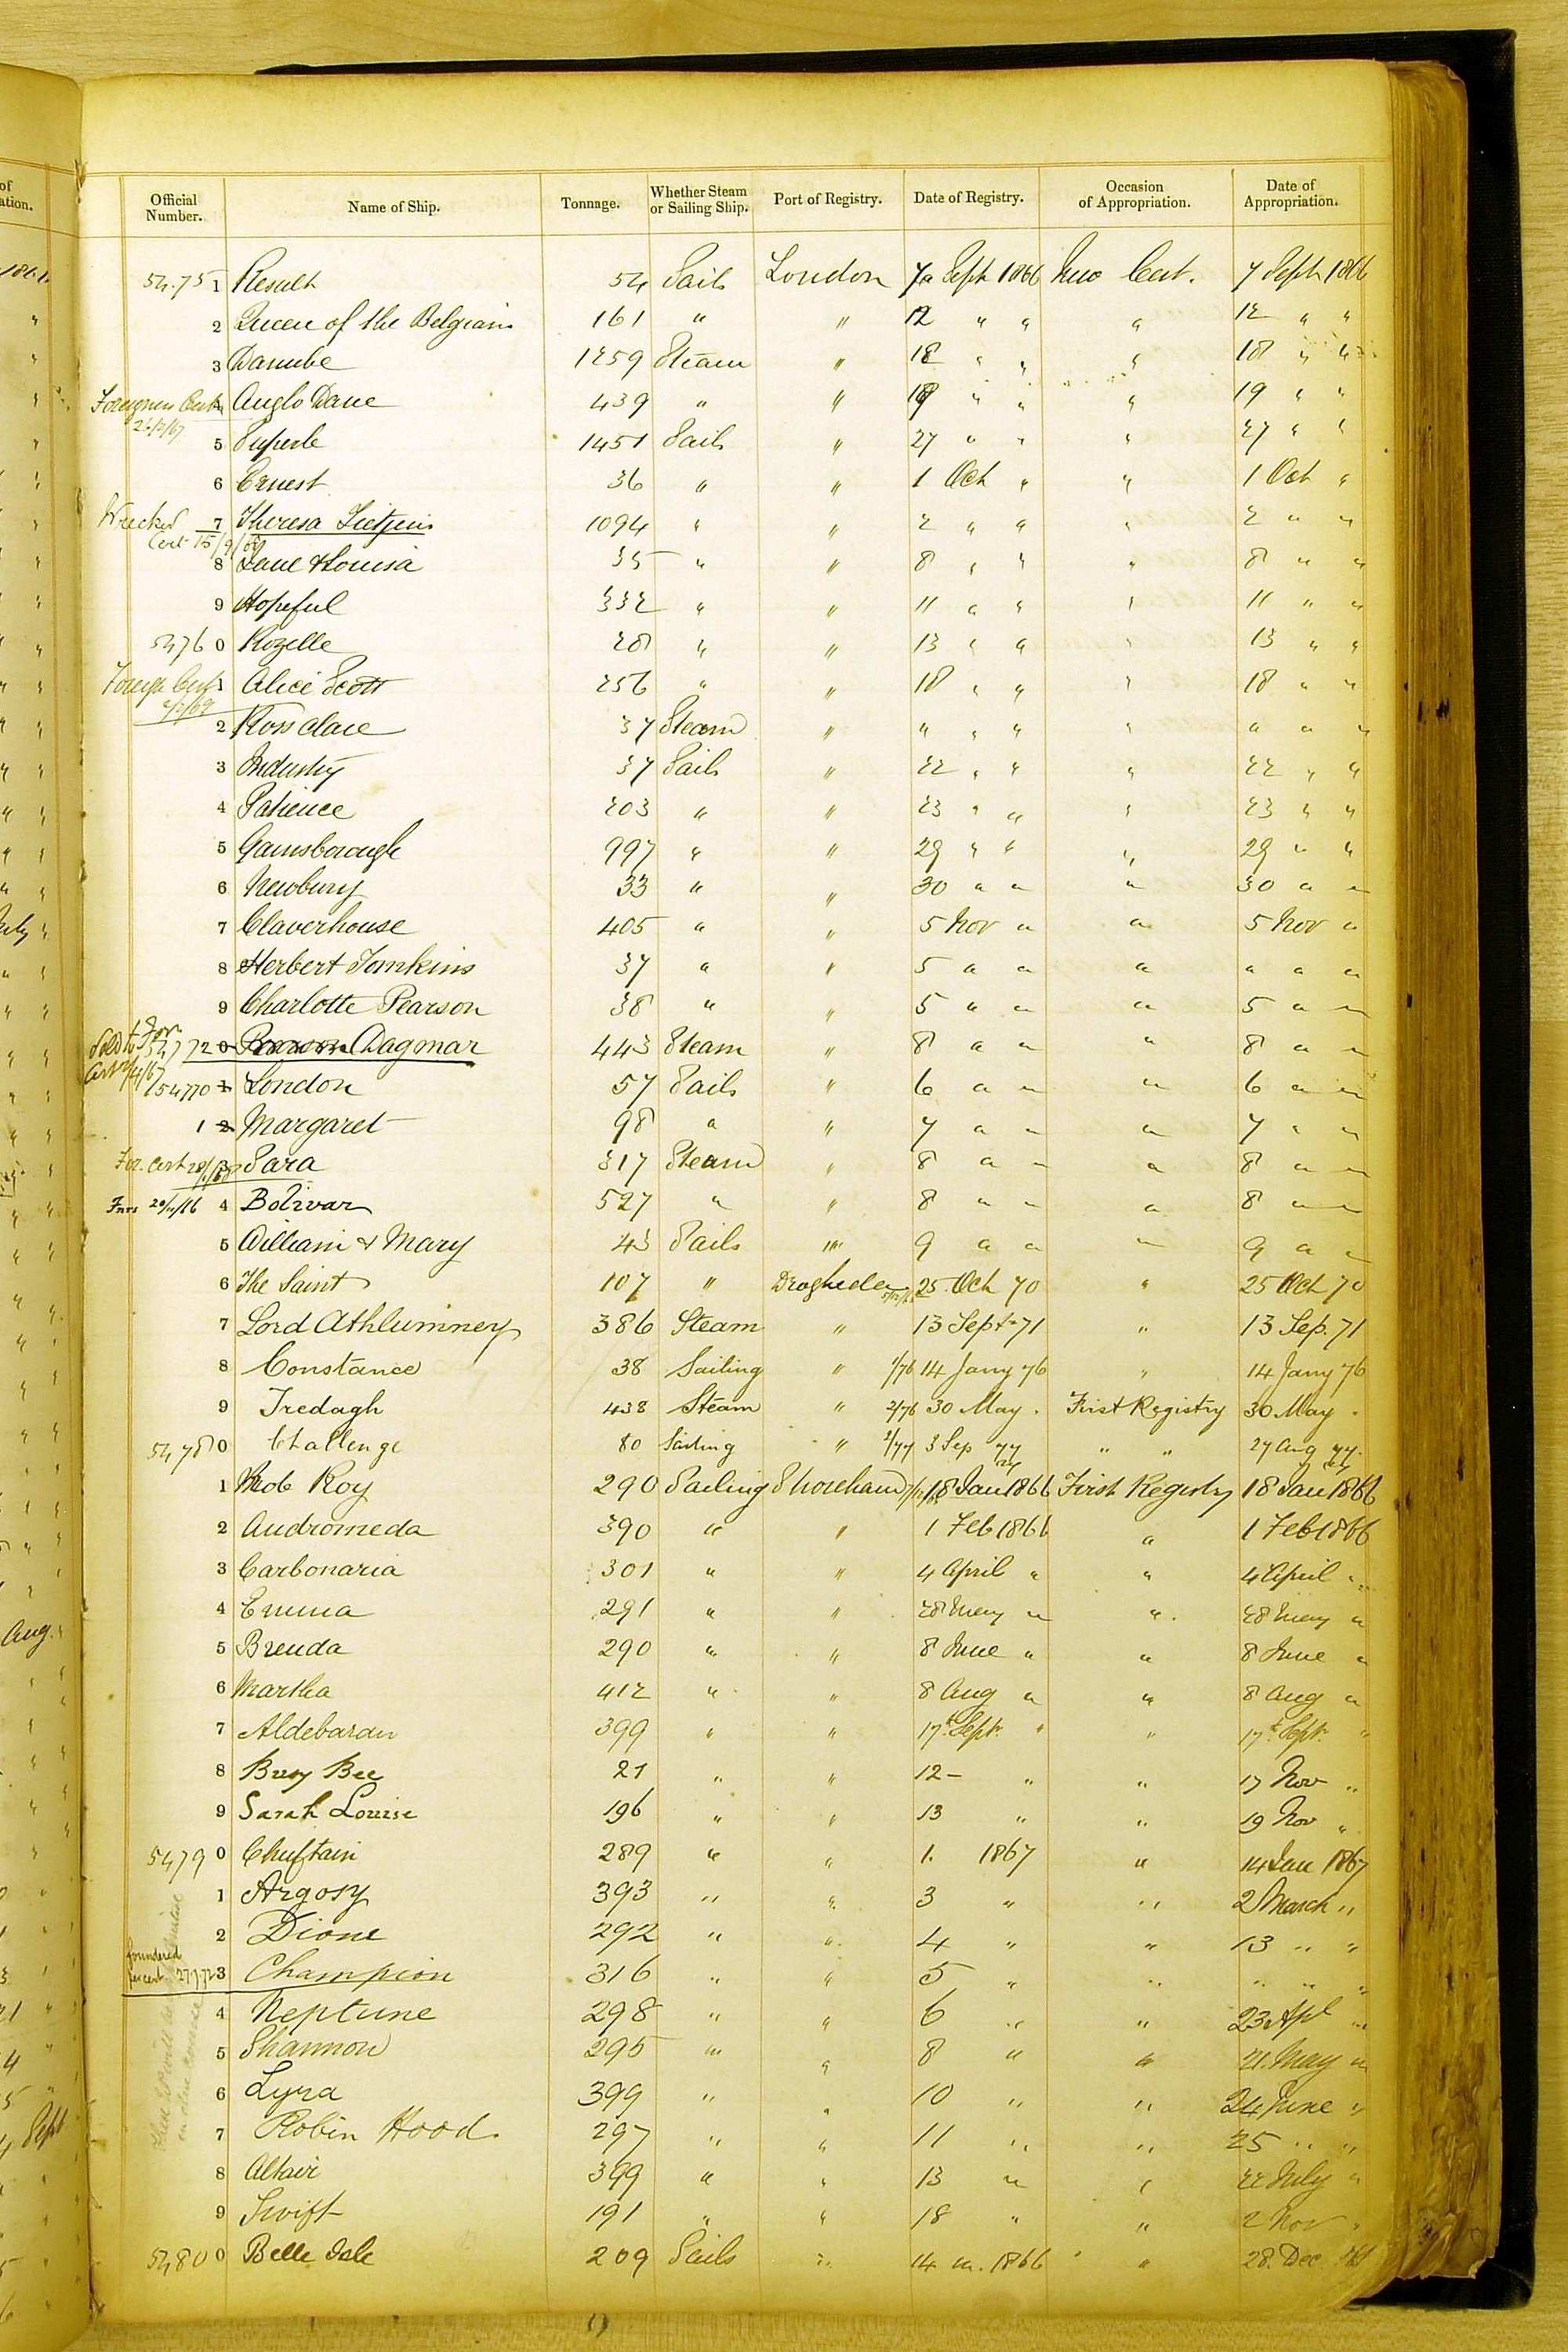 Official Number. Name of Ship. Tonnage. Whether Steam or Sailing Ship. Port of Registry. Date of Registry. Occasion of Appropriation. Date of Appropriation.
54.75 1 Result 54 Sails London 7 Sept 1866 New Cert. 7 Sept 1866
2 Queen of the Belgians 161 " " 12 " " " 12 " "
3 Danube 1259 Steam " 18 " " " 18 " "
Foreigners Cert Anglo Dane 439 " " 19 " " " 19 " "
5 Superb 1451 Sails " 27 " " " 27 " "
6 Ernest 36 " " 1 Oct " " 1 Oct "
Wrecked 7 Theresa 1094 " " 2 " " " 2 " "
Cert 15/9/
8 Jane & Louisa 35 " " 8 " " " 8 " "
9 Hopeful 332 " " 11 " " " 11 " "
5476 0 Rozelle 28 " " 13 " " " 13 " "
Foreign Cert 1 Alice Scott 256 " " 18 " " " 18 " "
2 Rossclare 37 Steam " " " " " " " "
3 Industry 37 Sails " 22 " " " 22 " "
4 Patience 203 " " 23 " " " 23 " "
5 Gainsborough 997 " " 29 " " " 29 " "
6 Newbury 33 " " 30 " " " 30 " "
7 Claverhouse 405 " " 5 Nov " " 5 Nov "
8 Herbert Tomkins 37 " " 5 " " " " " "
9 Charlotte Pearson 38 " " 5 " " " 5 " "
Sold For. 54772 0 Dagmar 443 Steam " 8 " " " 8 " "
54770 1 London 57 Sails " 6 " " " 6 " "
1 2 Margaret 98 " " 7 " " " 7 " "
For. Cert 3 Sara 317 Steam " 8 " " " 8 " "
4 Bolivar 527 " " 8 " " " 8 " "
5 William & Mary 43 Sails " 9 " " " 9 " "
6 The Saint 107 " Drogheda 25 Oct 70 " 25 Oct 70
7 Lord Athlumney 386 Steam " 13 Sept 71 " 13 Sep. 71
8 Constance 38 Sailing " 1/76 14 Jany 76 " 14 Jany 76
9 Tredagh 438 Steam " 2/76 30 May. First Registry 30 May.
5478 0 Challenge 80 Sailing " 2/77 3 Sep 77 " " 27 Aug 77.
1 Rob Roy 290 Sailing Shoreham 18 Jan 1866 First Registry 18 Jan 1866
2 Andromeda 390 " " 1 Feb 1866 " 1 Feb 1866
3 Carbonaria 301 " " 4 April " " 4 April "
4 Emma 291 " " 28 May " " 28 May "
5 Brenda 290 " " 8 June " " 8 June "
6 Martha 412 " " 8 Aug " " 8 Aug "
7 Aldebaran 399 " " 17 Sept. " " 17 Sept. "
8 Busy Bee 21 " " 12 - " " 17 Nov "
9 Sarah Louise 196 " " 13 " " 19 Nov "
5479 0 Chieftain 289 " " 1. 1867 " 14 Jan 1867
1 Argosy 393 " " 3 " " 2 March "
2 Dione 292 " " 4 " " 13 " "
foundered per cert. 3 Champion 316 " " 5 " " " " "
4 Neptune 298 " " 6 " " 23 Apl "
5 Shannon 295 " " 8 " " 21. May "
6 Lyra 399 " " 10 " " 24 June "
7 Robin Hood 297 " " 11 " " 25 " "
8 Altair 399 " " 13 " " 22 July "
9 Swift 191 " " 18 " " 2 Nov "
5480 0 Belle Isle 209 Sails " 14 in. 1866 " 28. Dec.